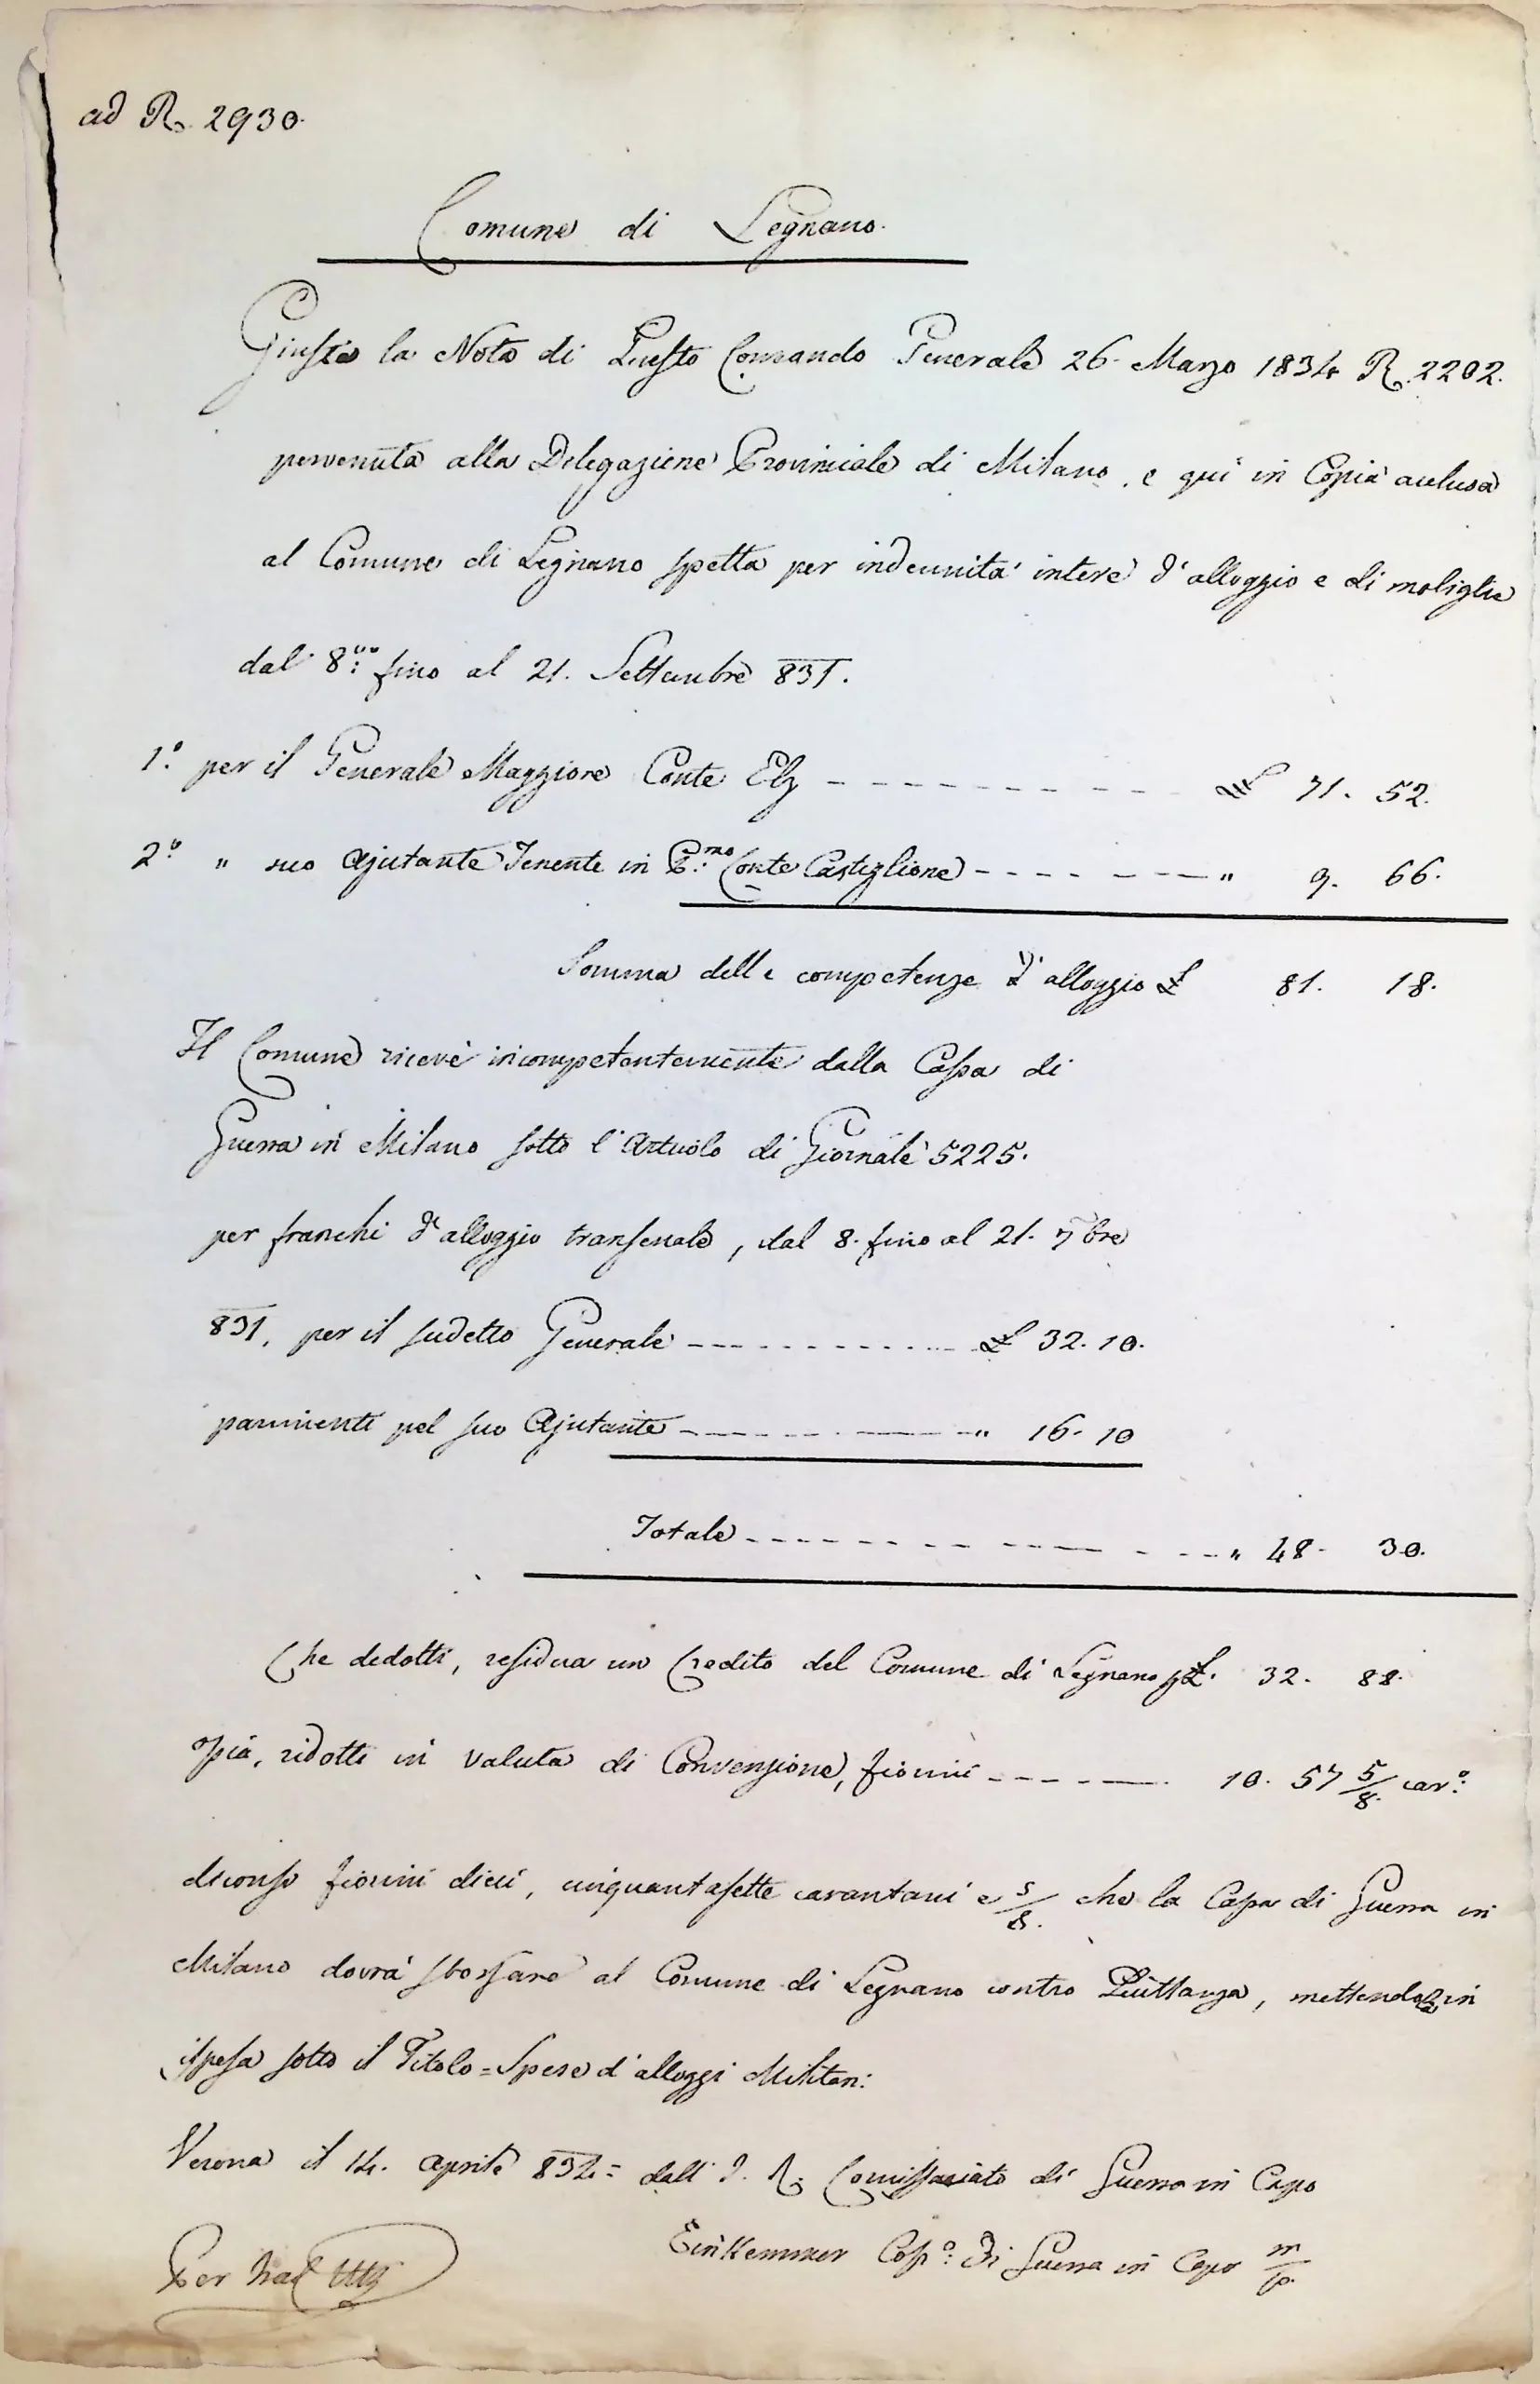 ad R. 2930.
Comune di Legnano.
Giusta la Nota di Questo Comando Generale 26. Marzo 1834 R. 2202.
pervenuta alla Delegazione Provinciale di Milano, e qui in Copia acclusa
al Comune di Legnano spetta per indennità intere d'alloggio e di mobiglie
dal 8.vo fino al 21. Settembre 831.
1.º per il Generale Maggiore Conte Elz £ 71. 52.
2.º " suo Ajutante Tenente in P.mo Conte Castiglione " 9. 66.
Somma delle competenze d'alloggio £ 81. 18.
Il Comune ricevè incompetentemente dalla Cassa di
Guerra in Milano sotto l'Articolo di Giornale 5225.
per franchi d'alloggio transenale, dal 8. fino al 21. 7bre
831, per il sudetto Generale £ 32. 10.
parimenti pel suo Ajutante " 16. 10
Totale " 48. 30.
Che dedotti, residua un Credito del Comune di Legnano £. 32. 88.
ridotti in valuta di Convenzione, fiorini 10. 57 5/8 car.º
diconsi fiorini dieci, cinquantasette carantani e 5/8. che la Cassa di Guerra in
Milano dovrà sborsare al Comune di Legnano contro Quittanza, mettendoli in
ispesa sotto il Titolo = Spese d'alloggi Militari:
Verona il 14. Aprile 834 = dall' I. R. Comissariato di Guerra in Capo
Cosso.º di Guerra in Capo m/p.
Per